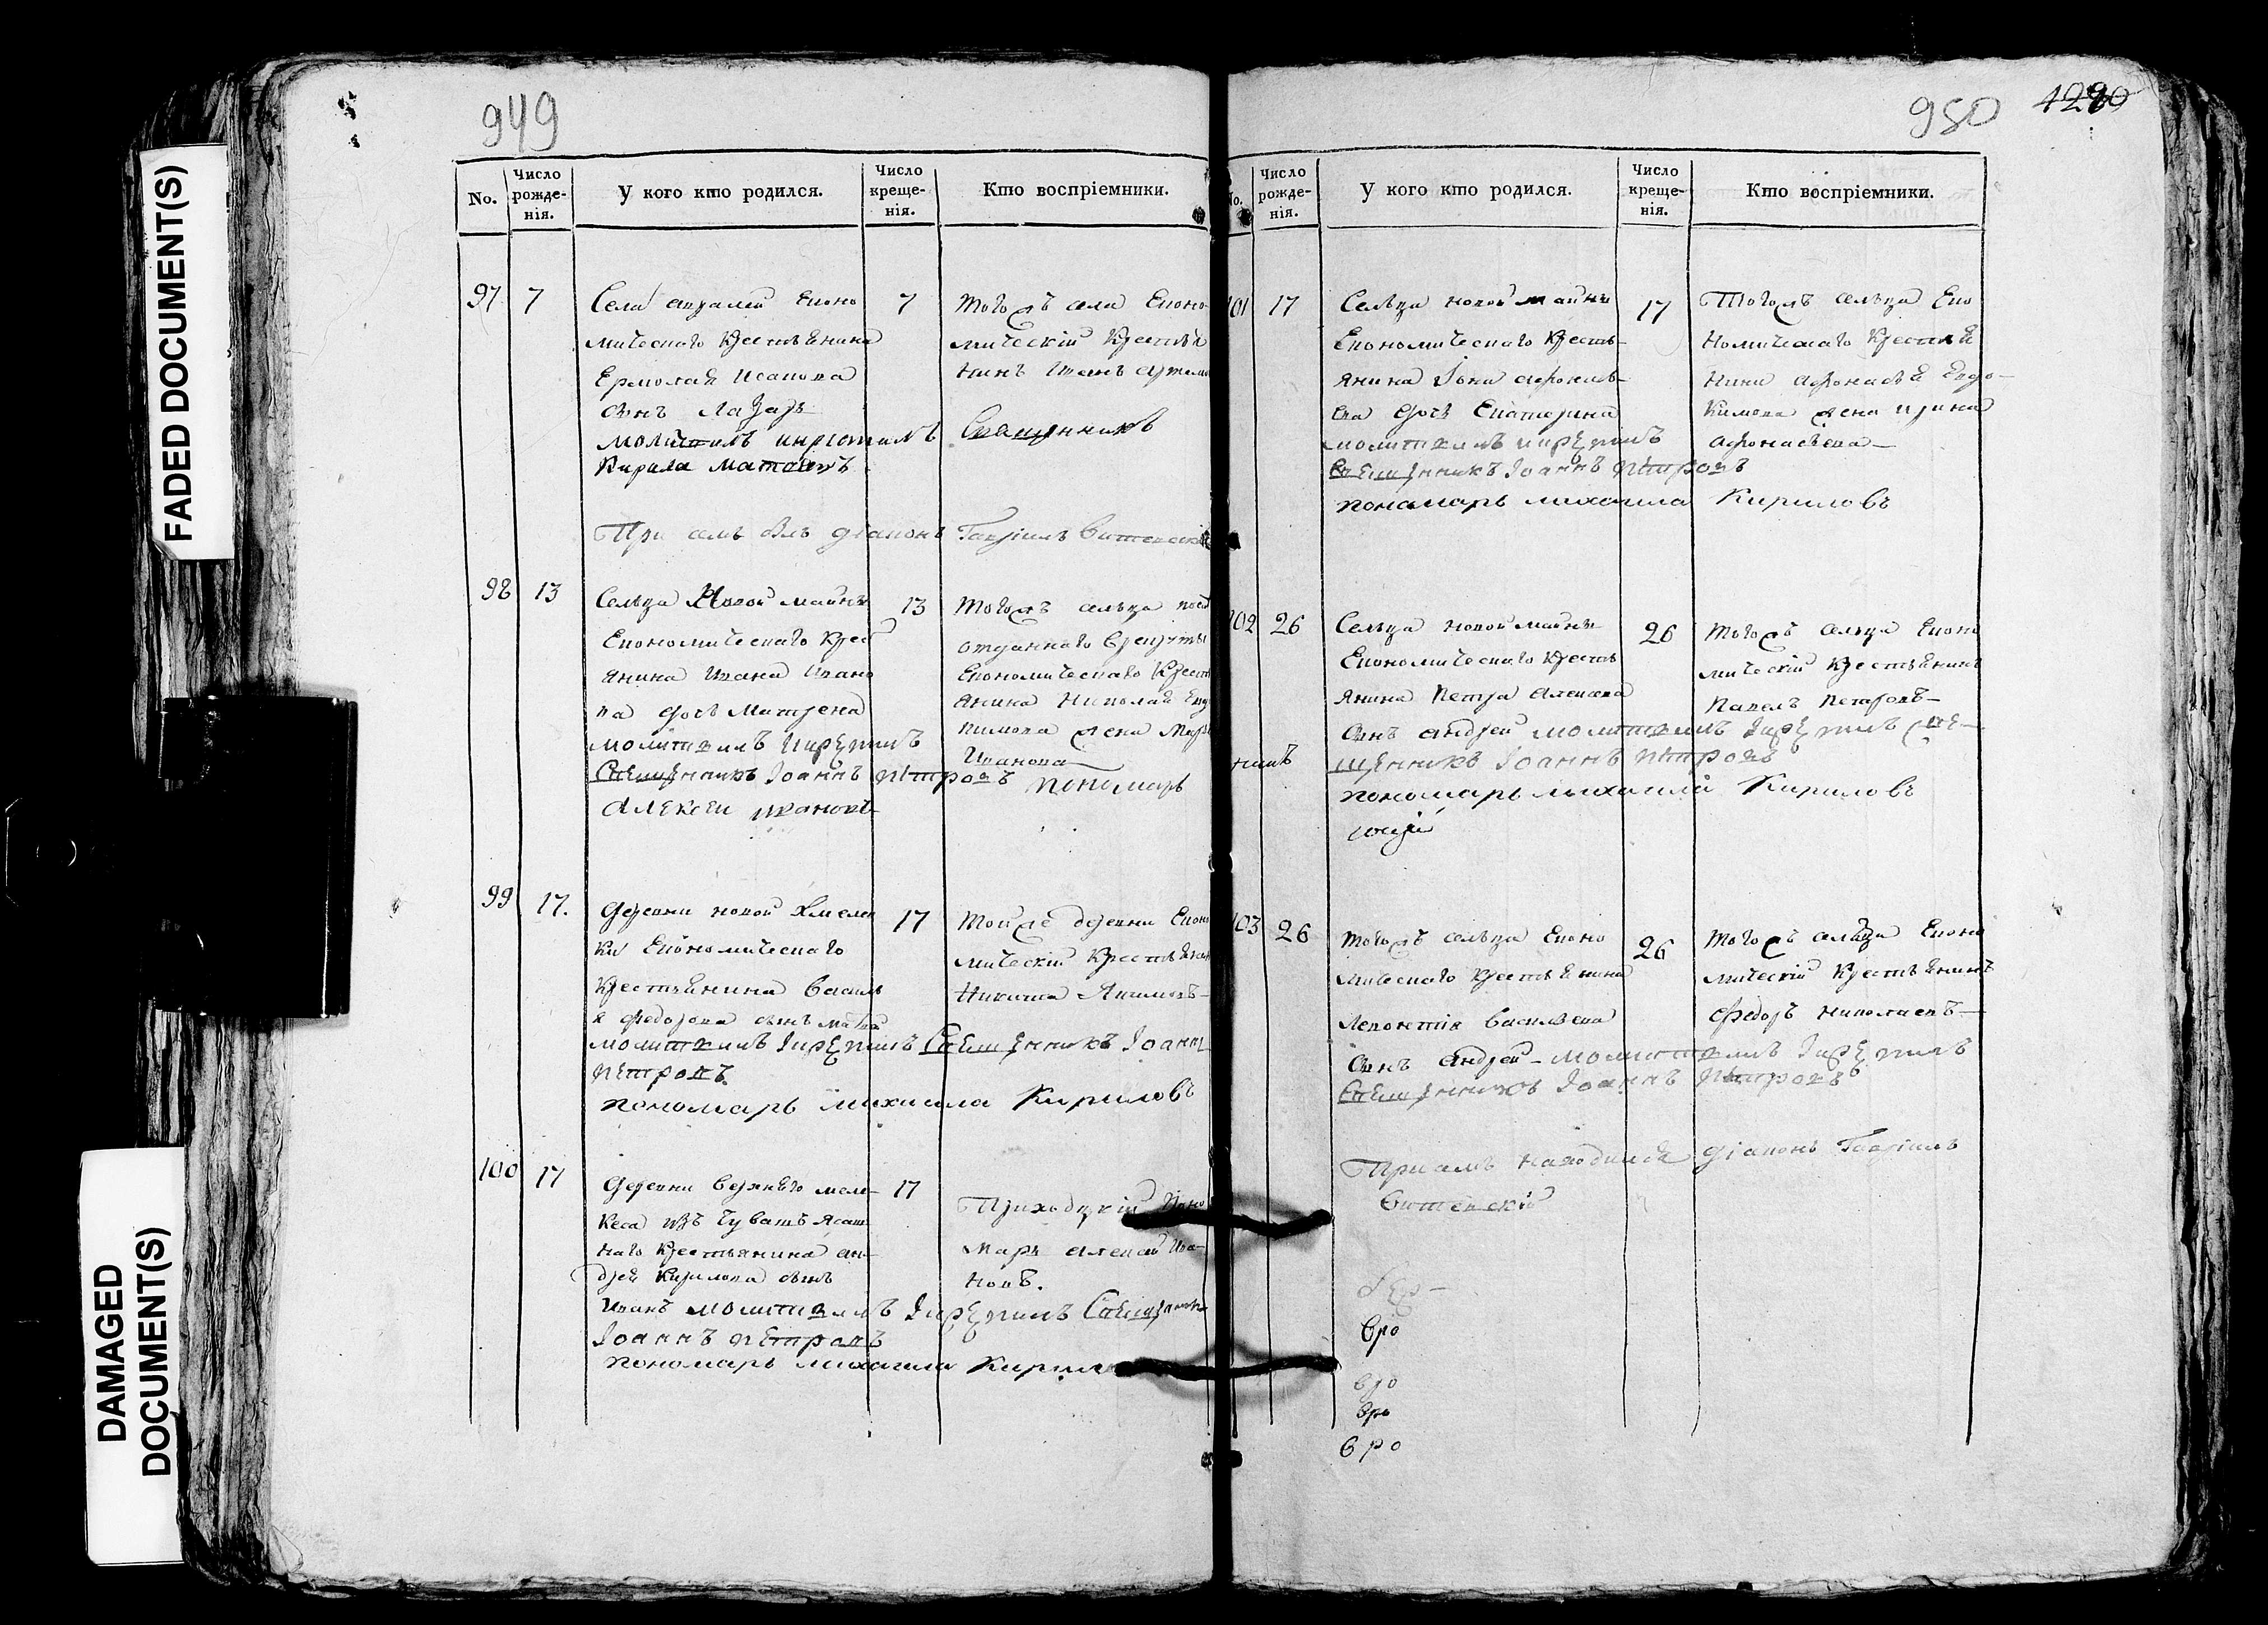 FADED DOCUMENT(S)
DAMAGED
DOCUMENT(S)
949
No.
Число рожде-нія.
У кого кто родился.
Число креще-нія.
Кто воспріемники.
97 7
Села Еконо
мическаго Крестьянина
Ермолая Исакова
сынъ Лазарь
молитвилъ и крстилъ
Кирила Матвѣевъ
7
тогожъ села Еконо
мическій Крестья
нинъ Иванъ Артемо
Священникъ
При семъ былъ діаконъ Гавріилъ Витевскій
98 13
Сельца Новой майны
Економическаго Крест
янина Ивана Ивано
ва дочь Матрена
молитвилъ икрестилъ
Священникъ Іоаннъ Петровъ
Алексеи ивановъ
13
тогожъ сельца
отданного врекруты
Економическаго Крестъ
янина Николая Евд
кимова жена Мар
Иванова
пономарь
99 17.
Деревни новой Хмелев
ки Економическаго
Крестьянина Василь
я Федорова сынъ
молитвилъ Iкрестилъ Священникъ Іоаннъ
Петровъ.
пономарь михаила Кириловъ
17
тойже деревни Еконо
мическій Крестьянин
Никита Якимовъ
100 17
Деревни Верхняго меле-
кеса изъ Чувашъ Ясаш
наго крестьянина Ан-
дрея Кирилова сынъ
Иванъ молитвилъ Iкрестилъ Священникъ
Іоаннъ Петровъ
пономарь михаила Кирил
17
Приходцкій Поно
марь Алексей Ива-
новъ.
980 1290
No.
Число рожде-нія.
У кого кто родился.
Число креще-нія.
Кто воспріемники.
101 17
Сельца новой майны
Економическаго Кресть-
янина Іоны Афонась-
ева дочь Екатерина
молитвилъ икрестилъ
Священникъ Іоаннъ Петровъ
пономарь михаила Кириловъ
17
Тогожъ сельца Еко
номическаго Крестья
нина Афонасья Евдо-
кимова жена ирина
Афонасьева
102 26
Сельца новой майны
Економическаго Кресть
янина Петра Алексева
сынъ Андрей молитвилъ Iкрестилъ Све-
щенникъ Іоаннъ Петровъ
пономарь михаила Кириловъ
26
тогожъ сельца Еконо
мическій Крестьянинъ
Павелъ Петровъ
103 26
тогожъ сельца Еконо
мическаго Крестьянина
Леконтія Васильева
сынъ Андрей молитвилъ Iкрестилъ
Священникъ Іоаннъ Петровъ
26
тогожъ сельца Еконо
мическій Крестьянинъ
Федоръ Николаевъ
При семъ находился діаконъ Гавріилъ
Витевскій
вро
вро
вро
вро